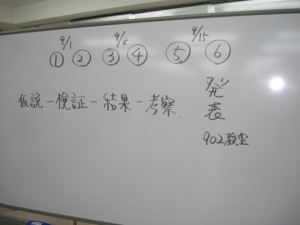 9/1 9/8 9/15
① ② ③ ④ ⑤ ⑥
仮説-検証-結果-考察
発表
902教室